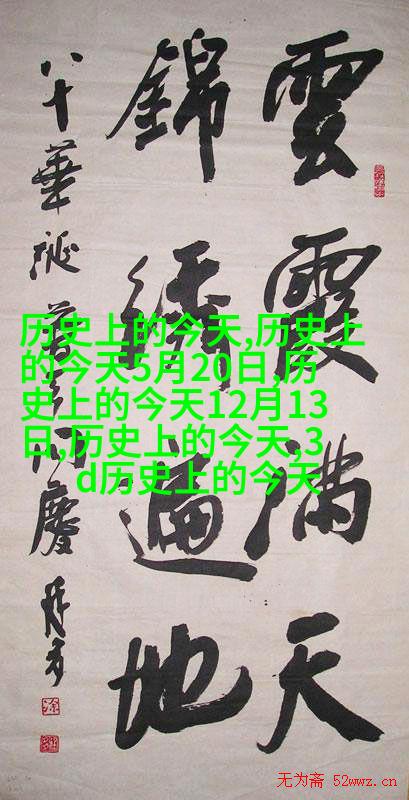 雲霞滿天
錦繡遍地
八十華誕
同慶
历史上的今天,历史上
的今天5月20日,历
史上的今天12月13
日,历史上的今天,3
d历史上的今天
无为斋 52wwz.cn